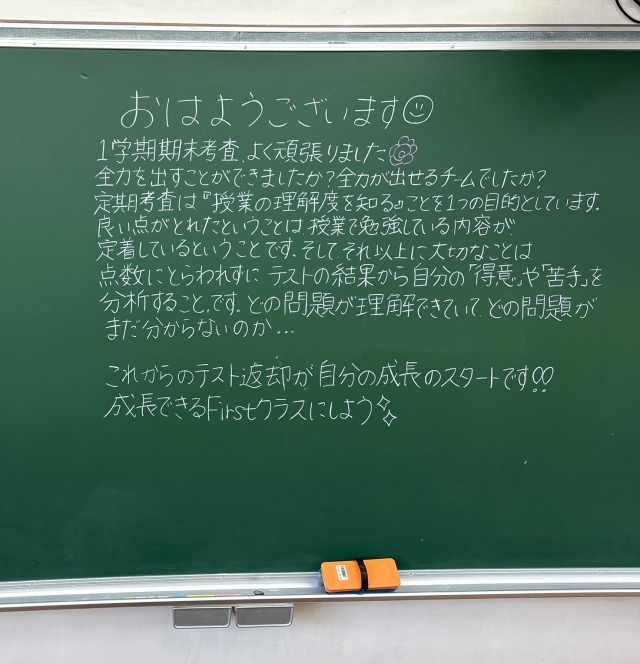 おはようございます☺
1学期期末考査、よく頑張りました
全力を出すことができましたか？全力が出せるチームでしたか？
定期考査は『授業の理解度を知る』ことを1つの目的としています。
良い点がとれたということは、授業で勉強している内容が
定着しているということです。そして、それ以上に大切なことは
点数にとらわれずに、テストの結果から自分の「得意」や「苦手」を
分析すること、です。どの問題が理解できていて、どの問題が
まだ分からないのか…
これからのテスト返却が、自分の成長のスタートです!!
成長できるFirstクラスにしよう✧